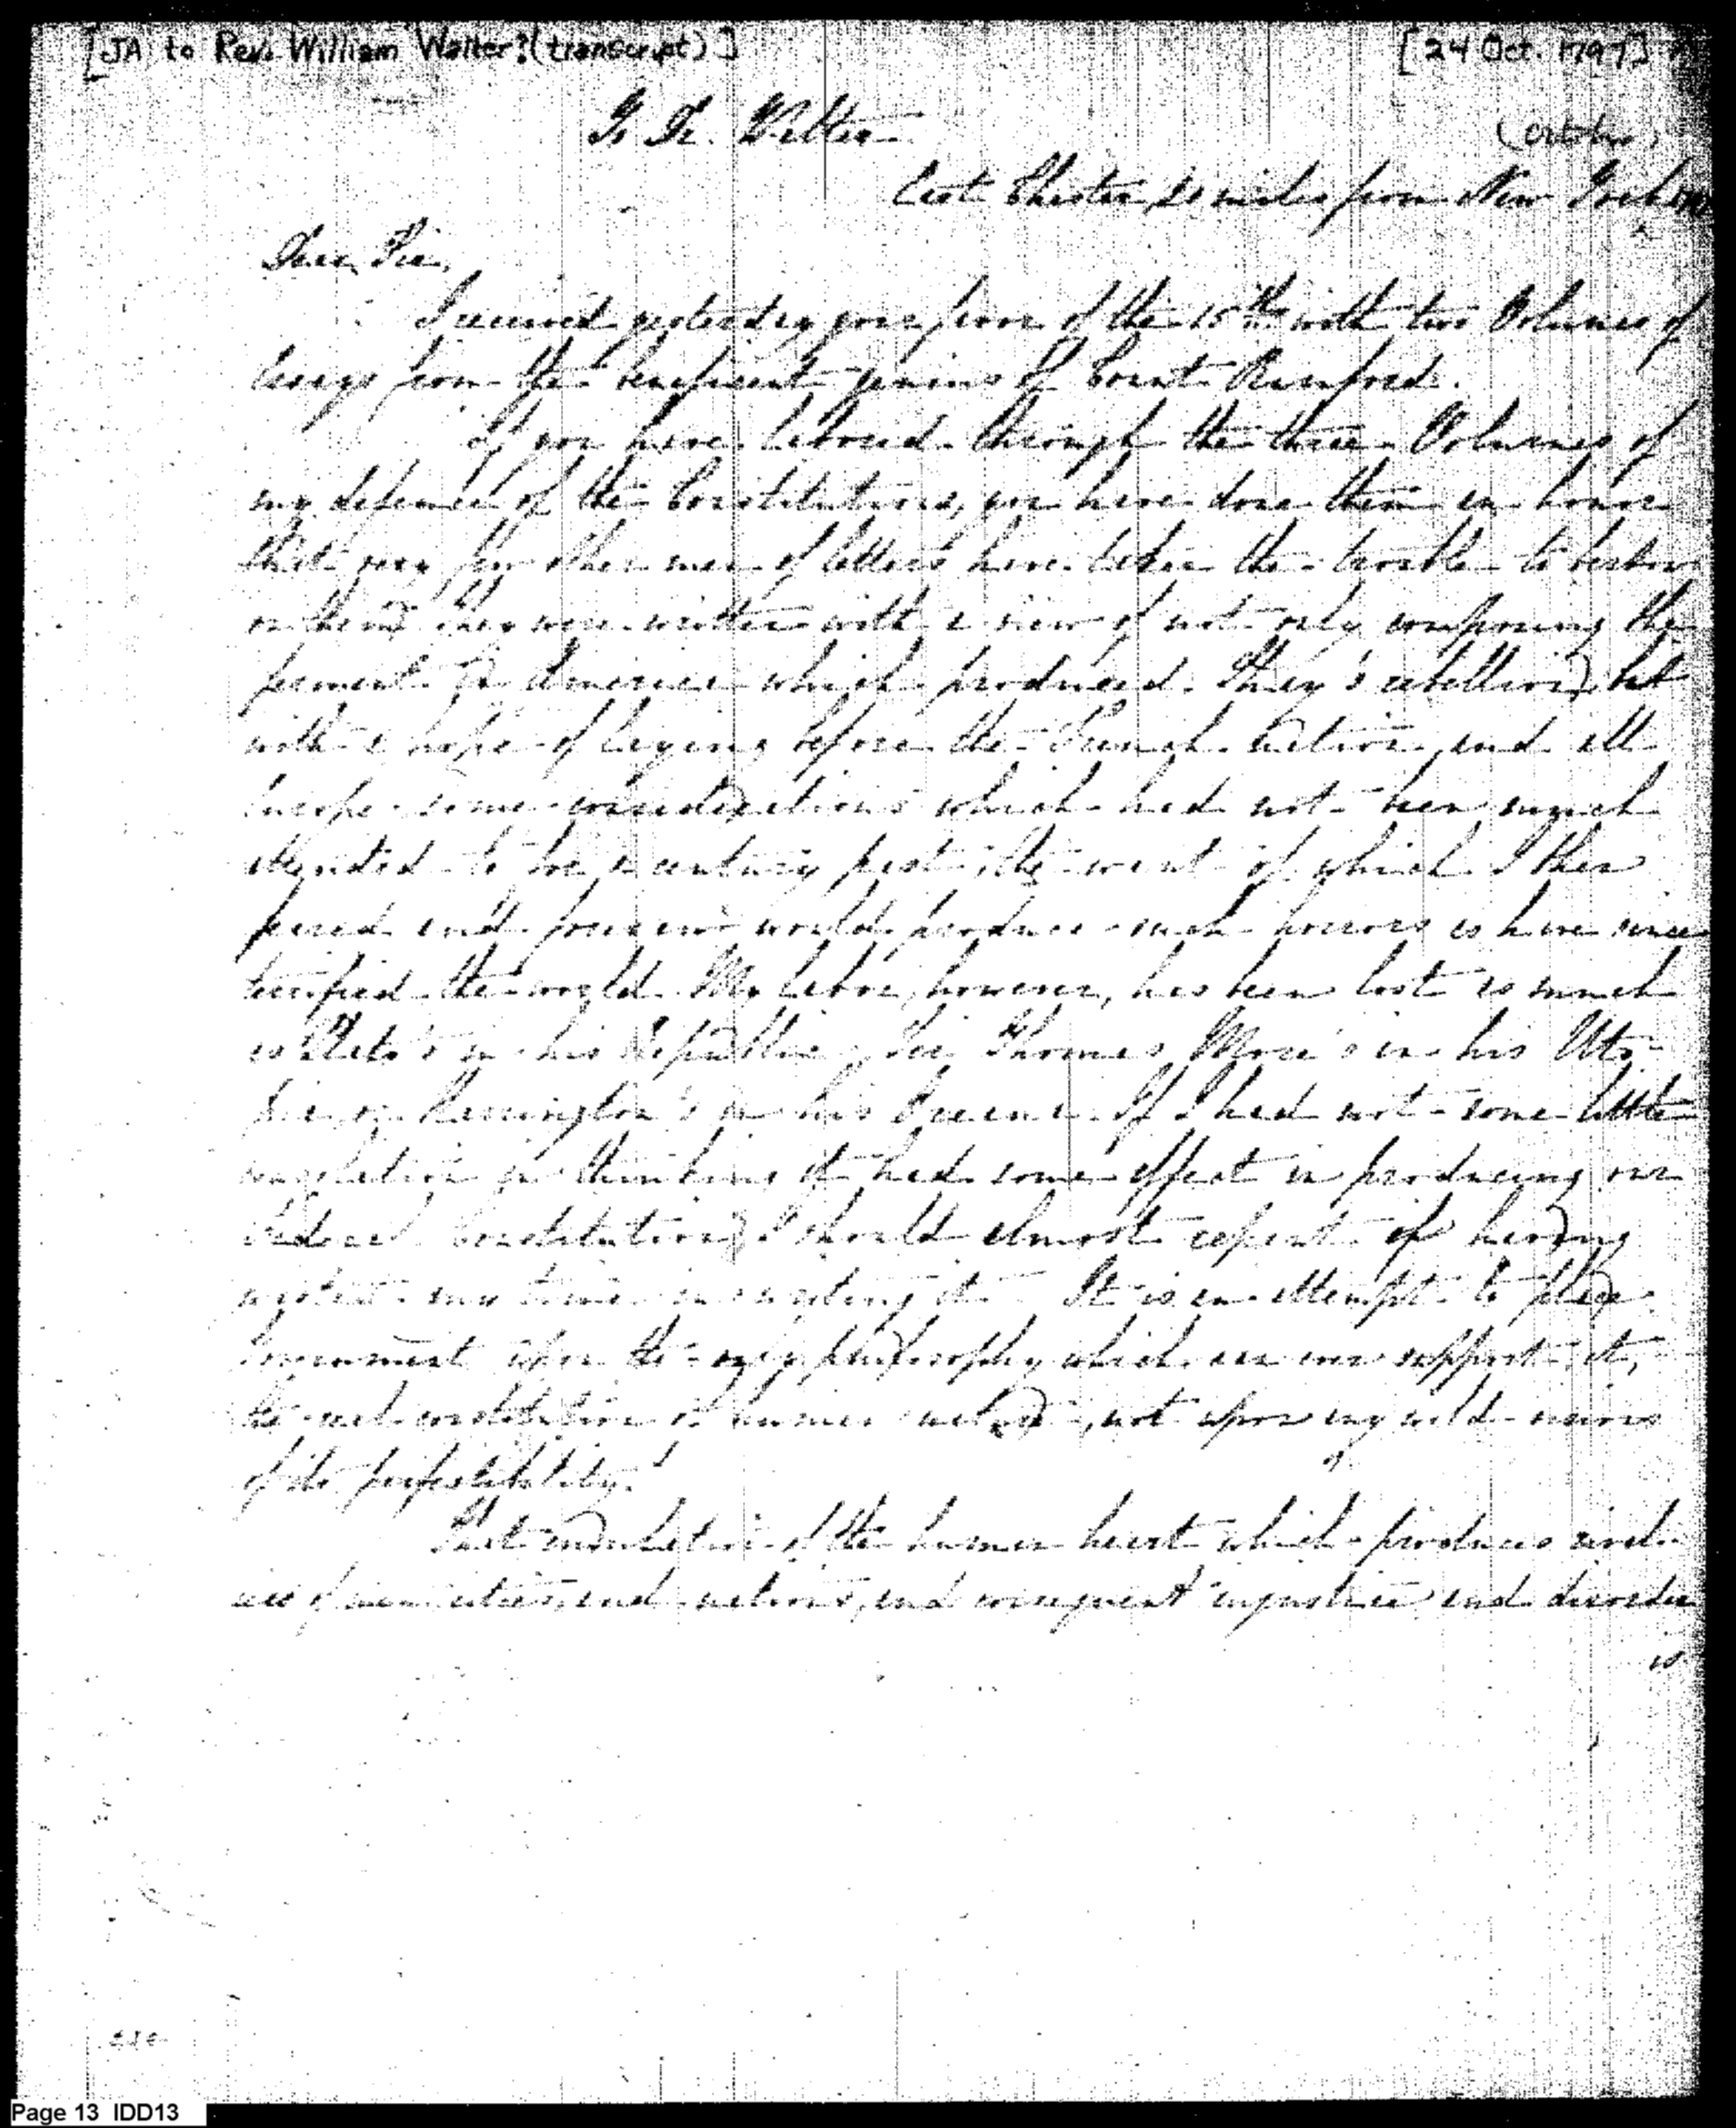 [JA to Rev. William Walter? (transcript)] [24 Oct. 1797]
To Dr. Walter
(October)
East Chester 20 miles from New York
Dear Sir,
I received yesterday your favor of the 15th with two Volumes of
Essays from the beneficent genius of Count Rumford.
If you have laboured through the three Volumes of
my defence of the Constitutions, you have done them an honor
that very few other men of letters have taken the trouble to bestow
on them they were written with a view of not only composing the
ferment in America which produced Shay's rebellion, but
with a hope of laying before the French nation, and all
Europe some considerations which had not been much
attended to for a century past, the want of which I then
feared and foresaw would produce such horrors as have since
terrified the world. My labor, however, has been lost as much
as Plato's in his Republic, Sir Thomas More's in his Uto-
pia, or Harrington's in his Oceana. If I had not some little
consolation in thinking it had some effect in producing our
federal Constitution, I should almost repent of having
wasted my time in writing it. It is an attempt to place
Government upon the only philosophy which can ever support it,
the real constitution of human nature, not upon any wild visions
of its perfectibility.
That emulation of the human heart which produces rival-
ries of men cities and nations, and consequent injustice and disorder
is
Page 13 IDD13